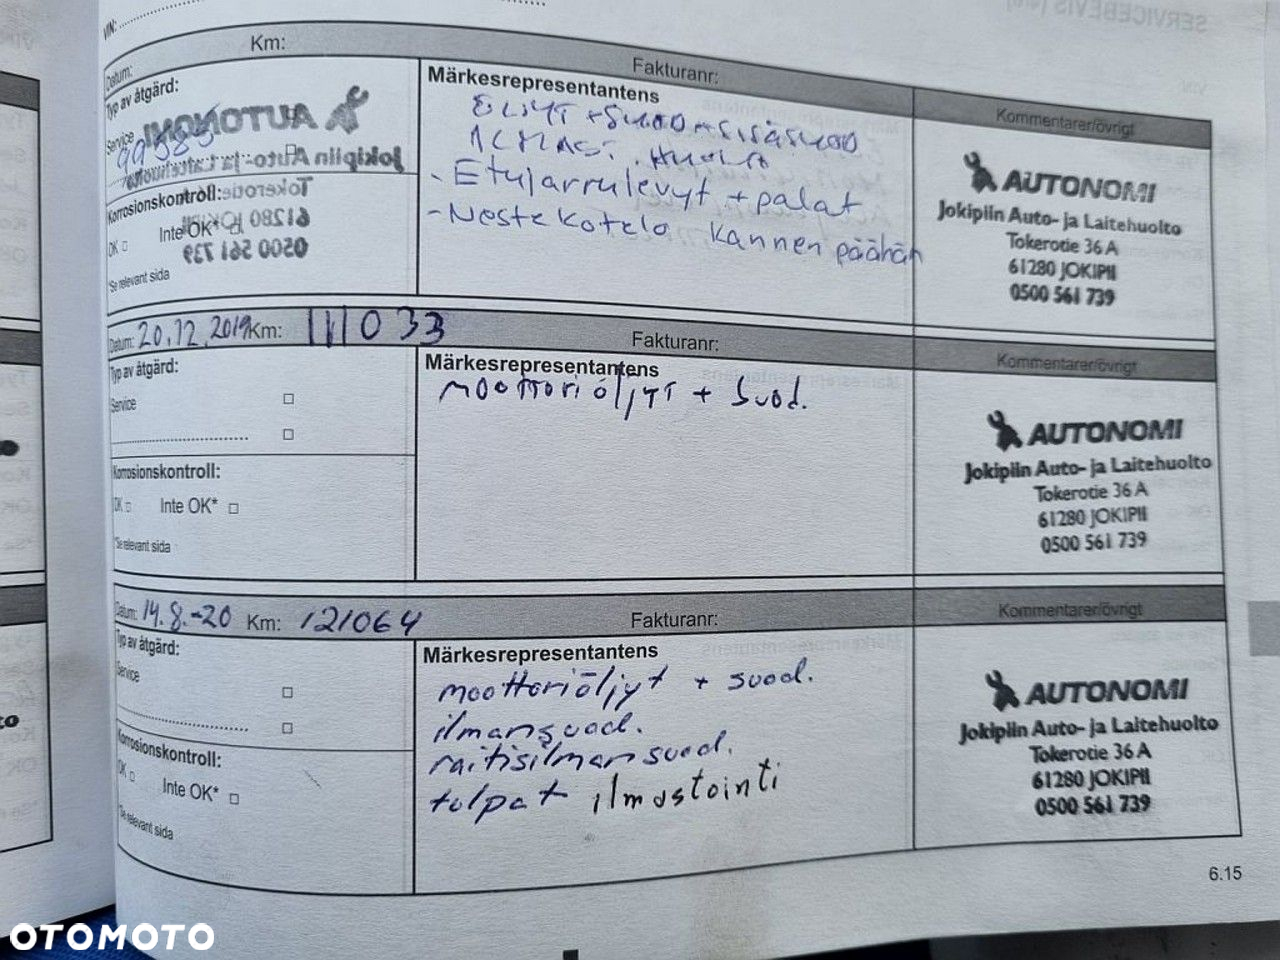 SERVICEBEVIS
VIN:
Datum: Km: Fakturanr:
Typ av åtgärd:
Service
99385
Korrosionskontroll:
OK Inte OK*
*Se relevant sida
Märkesrepresentantens
- Etujarrulevyt + palat
- Nestekotelo kannen päähän
Kommentarer/övrigt
AUTONOMI
Jokipiin Auto- ja Laitehuolto
Tokerotie 36 A
61280 JOKIPII
0500 561 739
Datum: 20.12.2019 Km: 111033 Fakturanr:
Typ av åtgärd:
Service
Korrosionskontroll:
OK Inte OK*
*Se relevant sida
Märkesrepresentantens
moottoriöljyt + suod.
Kommentarer/övrigt
AUTONOMI
Jokipiin Auto- ja Laitehuolto
Tokerotie 36 A
61280 JOKIPII
0500 561 739
Datum: 14.8.-20 Km: 121064 Fakturanr:
Typ av åtgärd:
Service
Korrosionskontroll:
OK Inte OK*
*Se relevant sida
Märkesrepresentantens
moottoriöljyt + suod.
ilmansuod.
raitisilmansuod.
tulpat ilmastointi
Kommentarer/övrigt
AUTONOMI
Jokipiin Auto- ja Laitehuolto
Tokerotie 36 A
61280 JOKIPII
0500 561 739
6.15
OTOMOTO